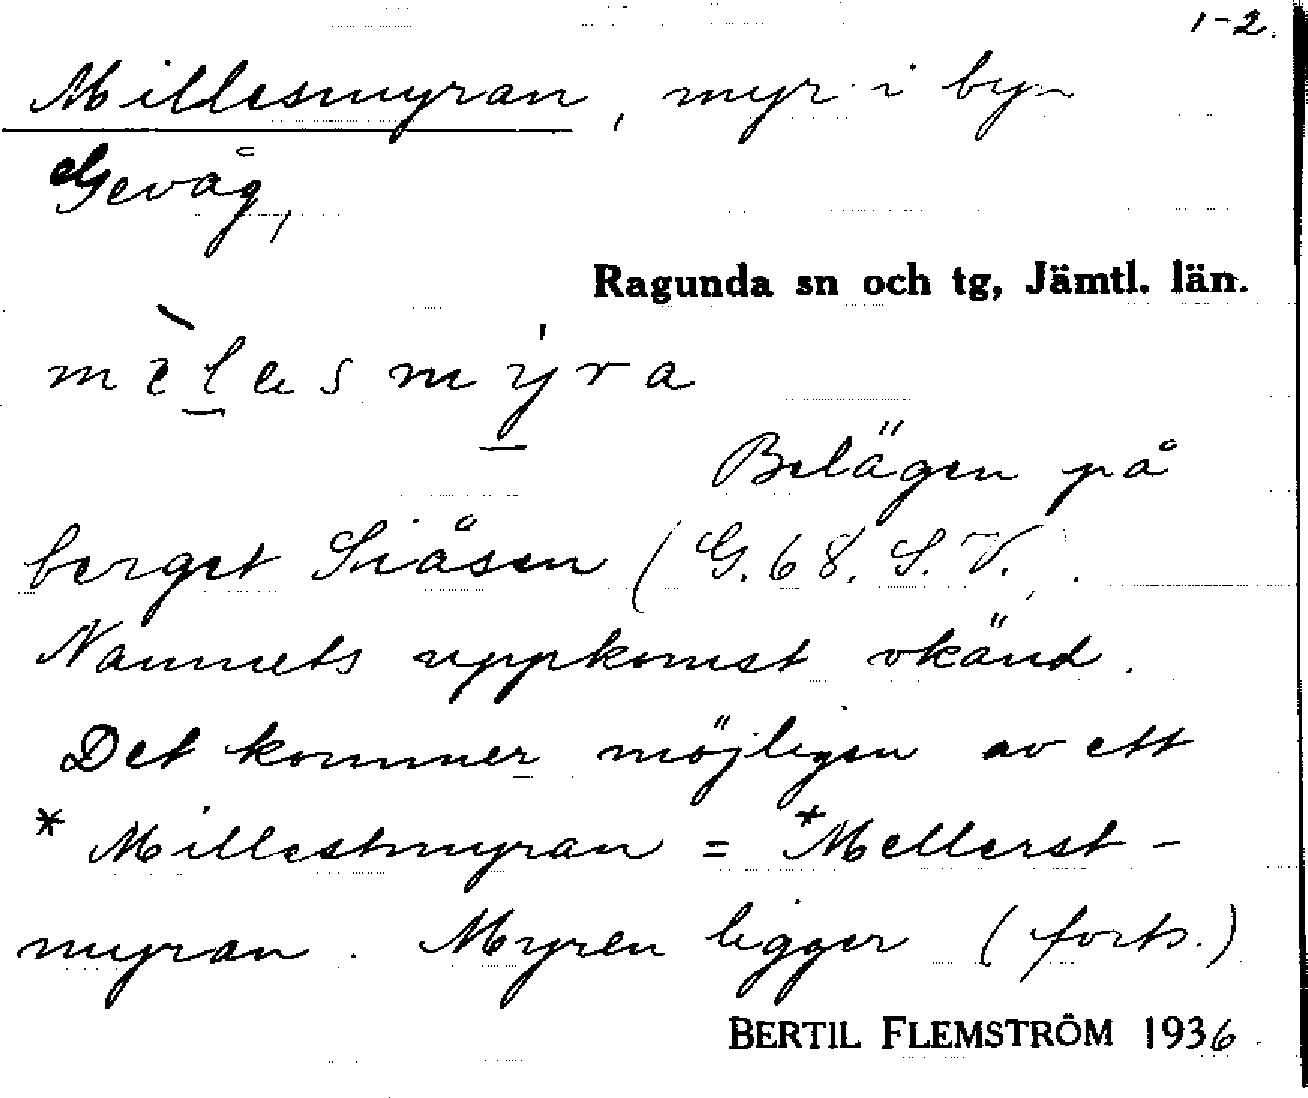 1-2.
Millesmyran, myr i byn
Gevåg,
Ragunda sn och tg, Jämtl. län.
mèlesmýra
Belägen på
berget Siåsen (G. 68. S. V.)
Namnets uppkomst okänd.
Det kommer möjligen av ett
* Millestmyran = *Mellerst-
myran. Myren ligger (forts.)
BERTIL FLEMSTRÖM 1936